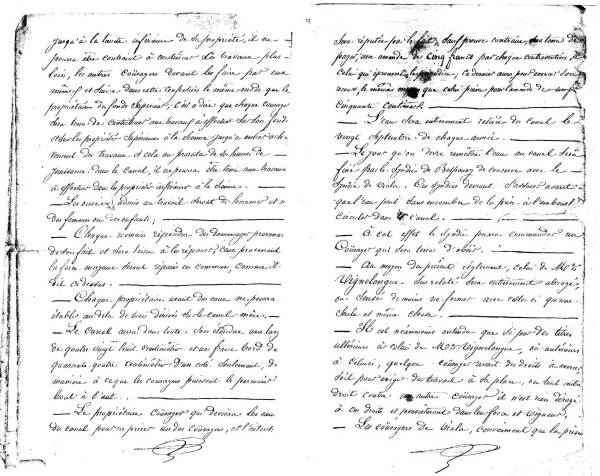 jusqu'à la limite inférieure de sa propriété, il ne
pourra être contraint à continuer les travaux plus
loin, les autres coüsagers devront les faire par eux
mêmes et suivre dans cette le même mode que le
propriétaire du fonds supérieur, c'est à dire que chaque coüsager
sera tenu de contribuer aux travaux à effectuer sur son fonds
et sur les propriétés supérieures à la sienne jusqu'à entier achè-
vement des travaux et cela au prorata de ses heures de
jouissance dans le canal, il ne pourra être tenu aux travaux
à effectuer dans les propriétés inférieures à la sienne.
— Les ouvriers admis au travail seront des hommes et non
des femmes ou des enfants;
— Chaque riverain répondra des dommages provenant
de son fait et sera tenu à les réparer; ceux provenant de
la force majeure seront réparés en commun, comme il est
dit ci-dessus.
— Chaque propriétaire usant des eaux ne pourra
établir au delà de trois sur le canal mère.
— Le canal aura dans toute son étendue une largeur
de quatre vingt huit centimètres et un franc bord de
quarante quatre centimètres d'un coté seulement, de
manière à ce que les coüsagers puissent le parcourir d'un
bout à l'autre.
— Le propriétaire coüsager qui dérivera les eaux
du canal pour en priver un des coüsagers, et l'intention
sera réputée par le fait, sauf preuve contraire, sera tenu de
payer une amende de cinq francs par chaque contravention, à
celui qui éprouvera le préjudice; ce dernier aura pour arroser son
le même que celui privé pour l'amende de un franc
cinquante centimes.
— L'eau sera entièrement retirée du canal le
vingt Septembre de chaque année.
— Le jour qu'on devra remettre l'eau au canal sera
fixé par le Syndic de de concert avec le
Syndic de Viala. Ces Syndics devront s'assurer avant
que l'eau peut sans encombre de la prise à l'embouchure
circuler dans le canal.
— à cet effet le Syndic pourra commander un
Coüsager qui sera tenu d'obéir.
— Au moyen du présent règlement, celui de Me
Vignelongue sus relaté sera entièrement abrogé,
ou censé du moins ne former avec celui-ci qu'une
seule et même chose.
— Il est néanmoins entendu que si par des titres
ultérieurs à celui de Me Vignelongue, ou antérieurs
à celui-ci, quelque coüsager avait des droits à exercer,
soit pour exiger du travail à sa place, ou tout autre
droit contre un autre coüsager il n'est rien dérogé
à ces droits et persisteront dans leur force et vigueur.
— Les coüsagers de Viala, conviennent que la prise